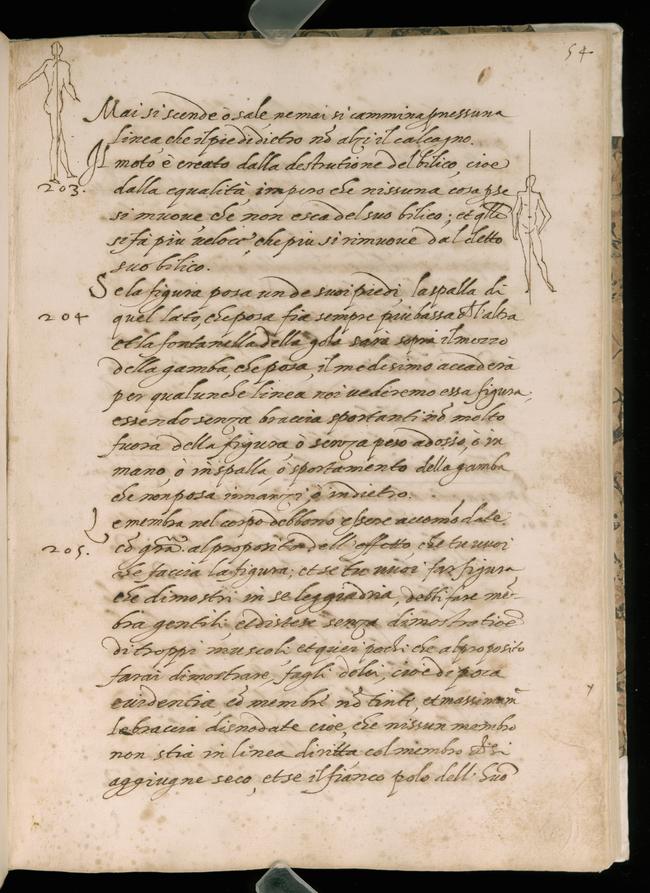 54
Mai si scende o sale ne mai si cammina p nessuna
linea che il pie di dietro nō alzi il calcagno.
Il moto è creato dalla destrutione del bilico, cioè
203. dalla equalità, impero che nissuna cosa p se
si muove che non esca del suo bilico; et qllo
si fa piu veloce, che piu si rimuove dal detto
suo bilico.
Se la figura posa un de suoi piedi, la spalla di
204 quel lato, che posa fia sempre piu bassa dell'altra
et la fontanella della gola sarà sopra il mezzo
della gamba, che posa, il medesimo accaderà
per qualunche linea noi vederemo essa figura,
essendo senza braccia sportanti nō molto
fuora della figura ò senza peso adosso, ò in
mano, ò in spalla ò sportamento della gamba
che non posa innanzi, ò indietro.
Le membra nel corpo debbono essere accomodate
205. cō grā. al proposito dell'effetto, che tu vuoi
che faccia la figura; et se tu vuoi far figura
che dimostri in se leggiadria, debbi fare mē-
bra gentili, et distese senza dimostratioē
di troppi muscoli et quei pochi che al proposito
farai dimostrare, fagli dolci, cioè di poca
evidentia, cō membri nō tinti, et massimam
le braccia disnodate cioè, che nissun membro
non stia in linea diritta col membro che si
aggiugne seco, et se il fianco polo dell' huō